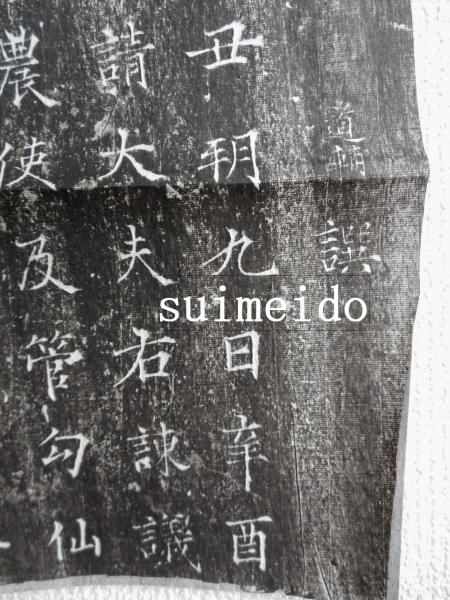 道輔 譔
丑朔九日辛酉
請大夫右諌議
農使及管勾仙
suimeido